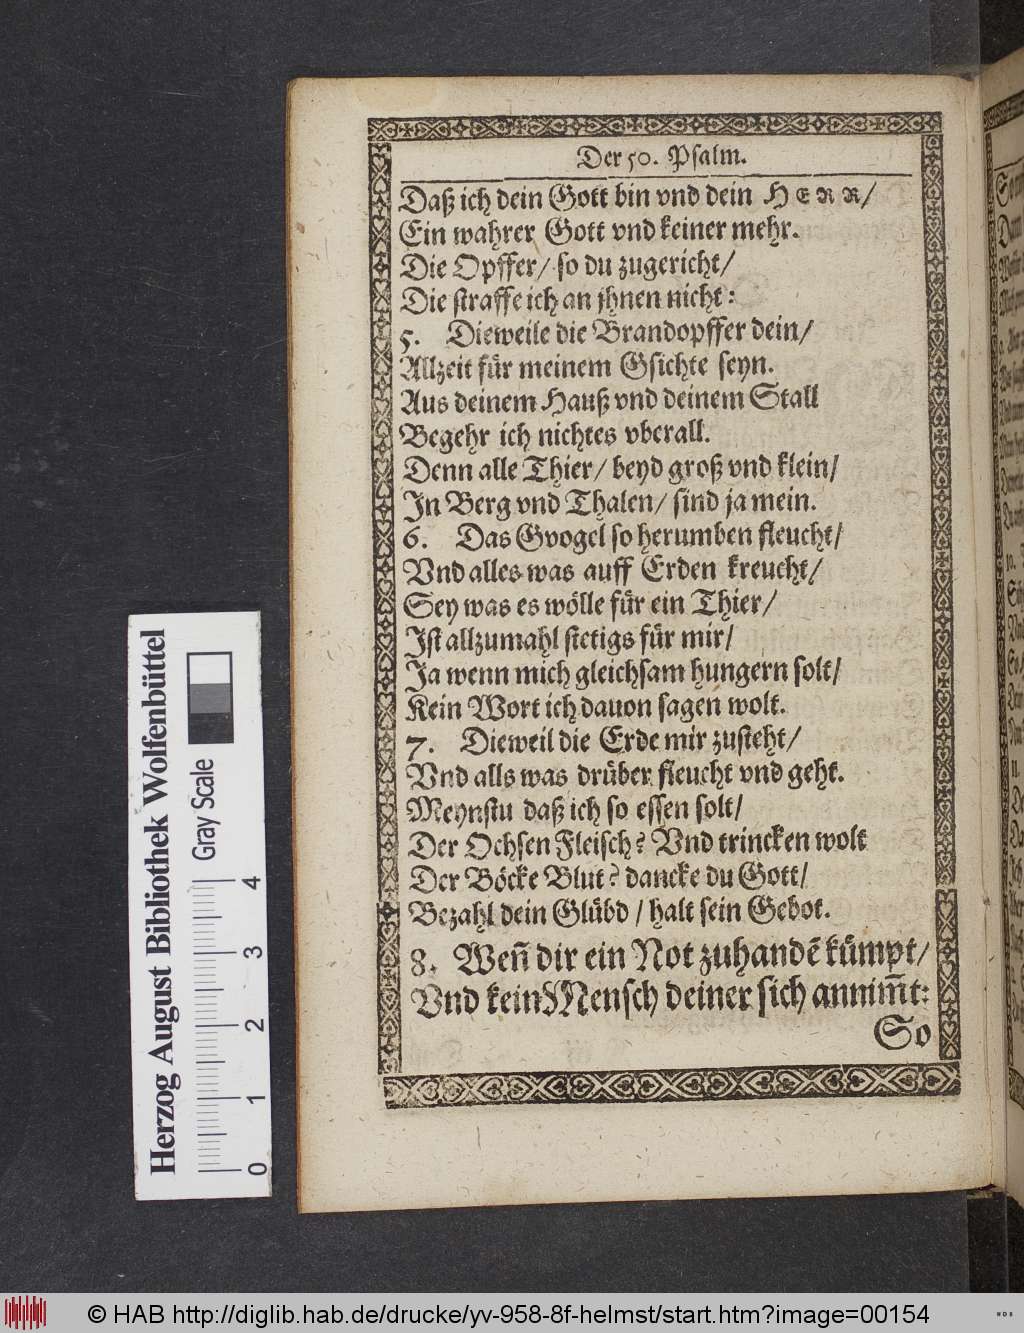 Der 50. Psalm.
Daß ich dein Gott bin vnd dein HERR/
Ein wahrer Gott vnd keiner mehr.
Die Opffer/ so du zugericht/
Die straffe ich an jhnen nicht:
5. Dieweile die Brandopffer dein/
Allzeit für meinem Gsichte seyn.
Aus deinem Hauß vnd deinem Stall
Begehr ich nichtes vberall.
Denn alle Thier/ beyd groß vnd klein/
In Berg vnd Thalen/ sind ja mein.
6. Das Gvogel so herumben fleucht/
Vnd alles was auff Erden kreucht/
Sey was es wölle für ein Thier/
Ist allzumahl stetigs für mir/
Ja wenn mich gleichsam hungern solt/
Kein Wort ich dauon sagen wolt.
7. Dieweil die Erde mir zusteht/
Vnd alls was drüber fleucht vnd geht.
Meynstu daß ich so essen solt/
Der Ochsen Fleisch? Vnd trincken wolt
Der Böcke Blut? dancke du Gott/
Bezahl dein Glübd / halt sein Gebot.
8. Weñ dir ein Not zuhandē kümpt/
Vnd kein Mensch deiner sich annim̃t:
So
Herzog August Bibliothek Wolfenbüttel
Gray Scale
0 1 2 3 4
© HAB http://diglib.hab.de/drucke/yv-958-8f-helmst/start.htm?image=00154